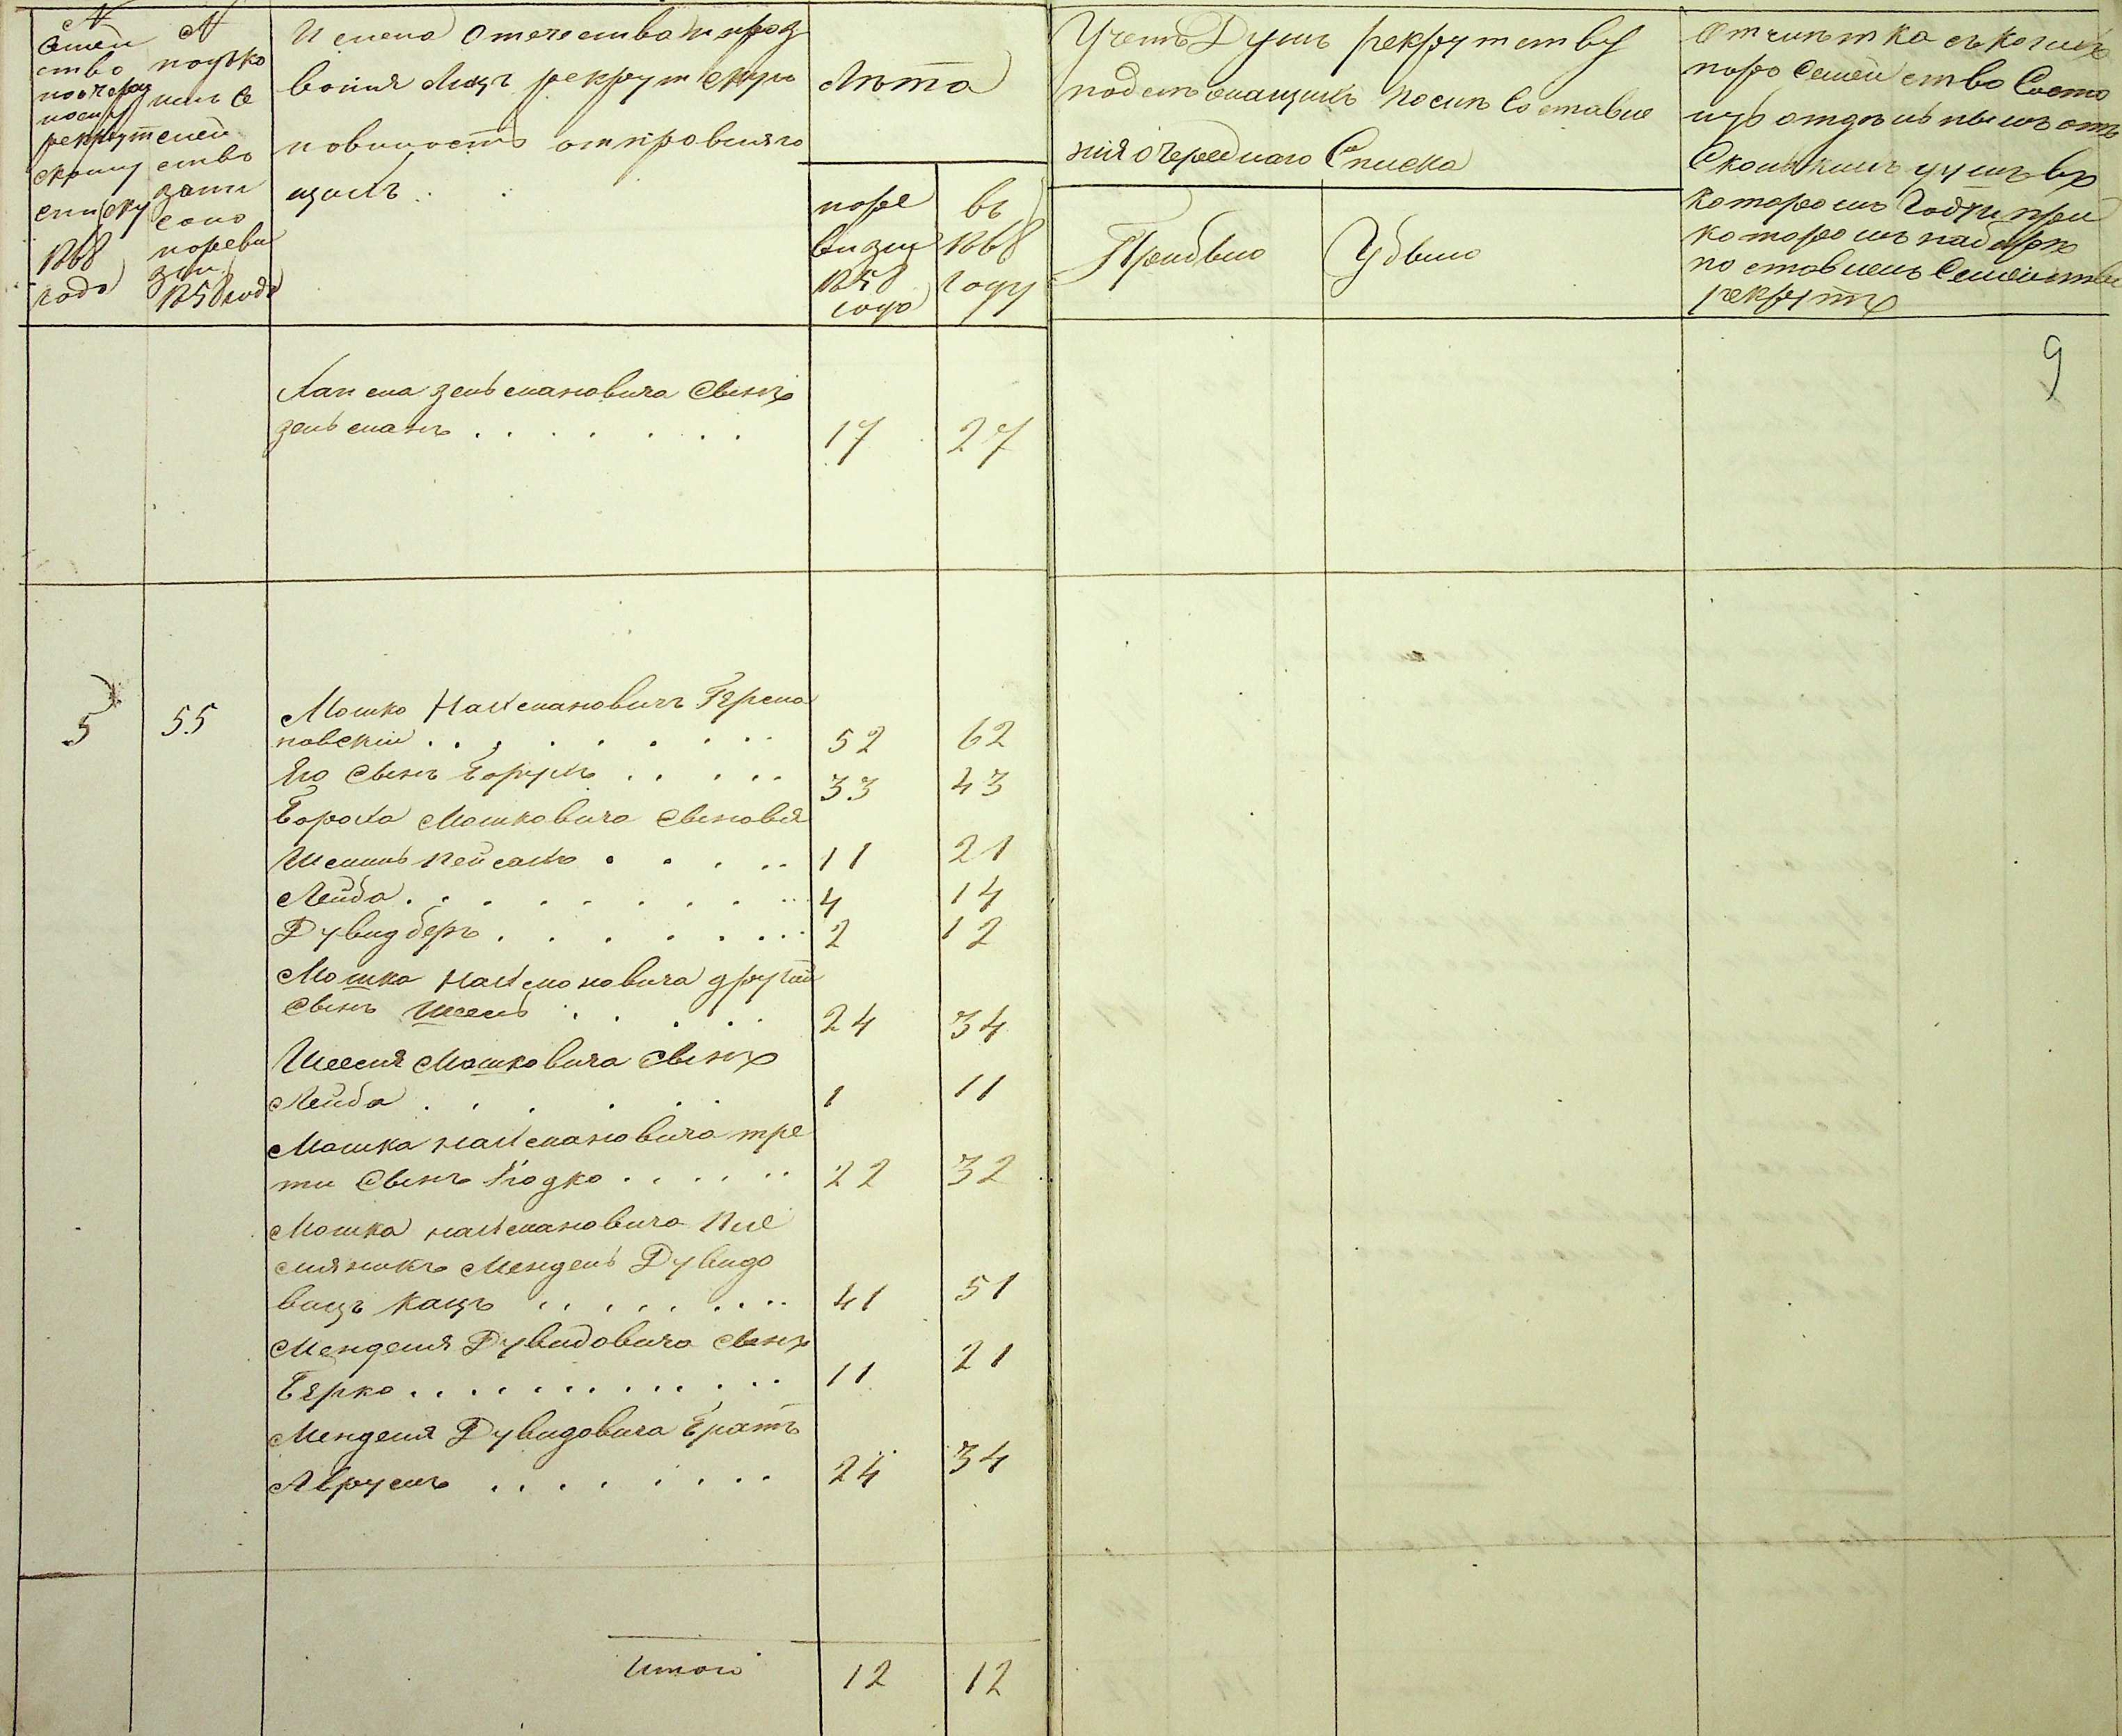 №
Семей
ство
по очеред
ному
рекрут
скому
списку
1868
года
№
подко
имъ Се
мей
ство
запи
сано
по реви
зіи
1858 года
Имена Отечества и проз
вонія Лицъ рекрутскую
повиность отправляю
щихъ
Лѣта
по ре
визіи
1858
году
въ
1868
году
Учетъ Душъ рекрутству
подлѣжащихъ после Составле
нія очереднаго Списка
Прибыло
Убыло
Отмѣтка съ коихъ
поръ Семейство Состо
итъ отдѣльнымъ отъ
Сколькихъ душъ въ
которомъ Году и при
которомъ наборѣ
поставленъ Семейством
рекрутъ
9
Хаима Зельмановича Сынъ
Зельманъ
17 27
5 55 Мошко Нахмановичъ Герма
новскій 52 62
Его Сынъ Борухъ 33 43
Бороха Мошковича Сыновья
Шемшь Пейсахъ 11 21
Лейба 4 14
Дувидберъ 2 12
Мошка Нахмановича другій
Сынъ Шеель 24 34
Шееля Мошковича Сынъ
Лейба 1 11
Мошка Нахмановича тре
ти Сынъ Іодко 22 32
Мошка Нахмановича Пле
мяникъ Мендель Дувидо
вицъ Кацъ 41 51
Менделя Дувидовича Сынъ
Берко 11 21
Менделя Дувидовича Братъ
Аврумъ 24 34
Итого 12 12